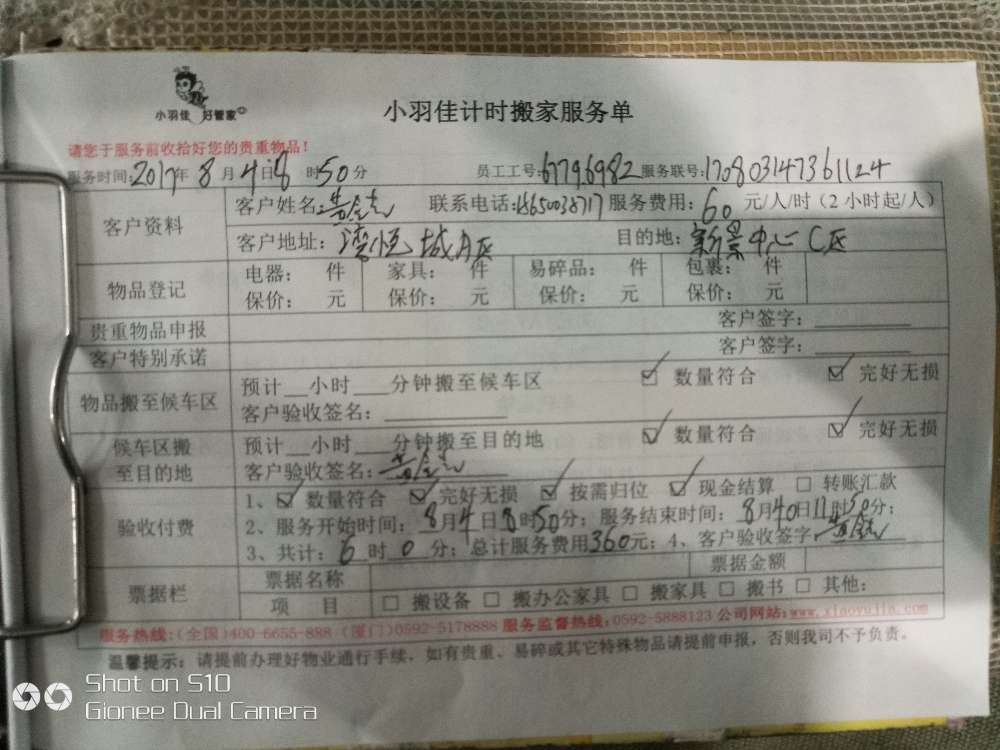 小羽佳 好管家
小羽佳计时搬家服务单
请您于服务前收拾好您的贵重物品!
服务时间:2017年8月4日8时50分 员工工号:67796982 服务联号:1708031473611224
客户资料 客户姓名: 联系电话:18650038717 服务费用:60元/人/时(2小时起/人)
客户地址: 城A区 目的地:新景中心C区
物品登记 电器: 件 家具: 件 易碎品: 件 包裹: 件
保价: 元 保价: 元 保价: 元 保价: 元
贵重物品申报 客户签字:
客户特别承诺 客户签字:
物品搬至候车区 预计__小时___分钟搬至候车区 ☑ 数量符合 ☑ 完好无损
客户验收签名:
候车区搬至目的地 预计__小时___分钟搬至目的地 ☑ 数量符合 ☑ 完好无损
客户验收签名:
验收付费 1、☑ 数量符合 ☑ 完好无损 ☑ 按需归位 ☑ 现金结算 □ 转账汇款
2、服务开始时间:8月4日8时50分;服务结束时间:8月4日11时50分;
3、共计:6时0分;总计服务费用360元;4、客户验收签字
票据栏 票据名称 票据金额
项 目 □ 搬设备 □ 搬办公家具 □ 搬家具 □ 搬书 □ 其他:
服务热线:(全国)400-6655-888 (厦门)0592-5178888 服务监督热线:0592-5888123 公司网站:www.xiaoyujia.com
温馨提示:请提前办理好物业通行手续,如有贵重、易碎或其它特殊物品请提前申报,否则我司不予负责。
Shot on S10
Gionee Dual Camera